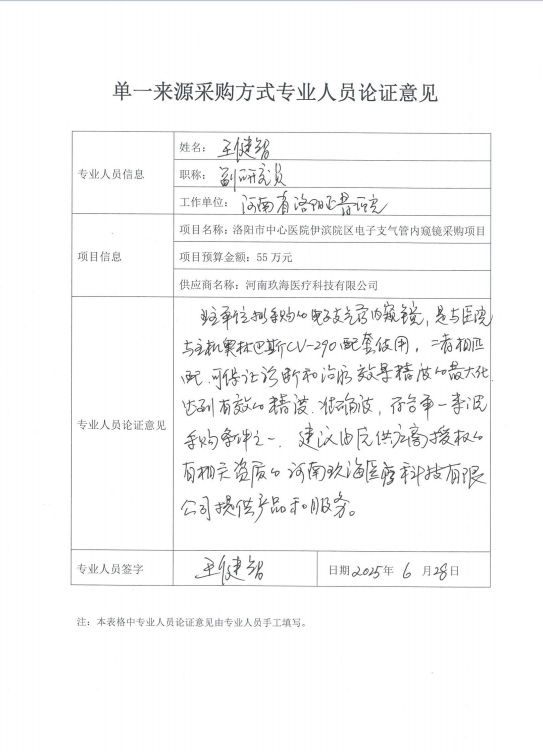 单一来源采购方式专业人员论证意见
专业人员信息
姓名：王健智
职称：副研究员
工作单位：河南省洛阳正骨医院
项目信息
项目名称：洛阳市中心医院伊滨院区电子支气管内窥镜采购项目
项目预算金额：55 万元
供应商名称：河南玖海医疗科技有限公司
专业人员论证意见
单位拟采购的电子支气管内窥镜，是与医院
与主机奥林巴斯CV-290配套使用，二者相匹
配，可保证诊断和治疗效果精度的最大化
达到有效的精度、准确度，符合单一来源
采购条件之一。建议由 供应商授权的
有相关资质的河南玖海医疗科技有限
公司提供产品和服务。
专业人员签字
王健智
日期 2025年 6 月 28 日
注：本表格中专业人员论证意见由专业人员手工填写。